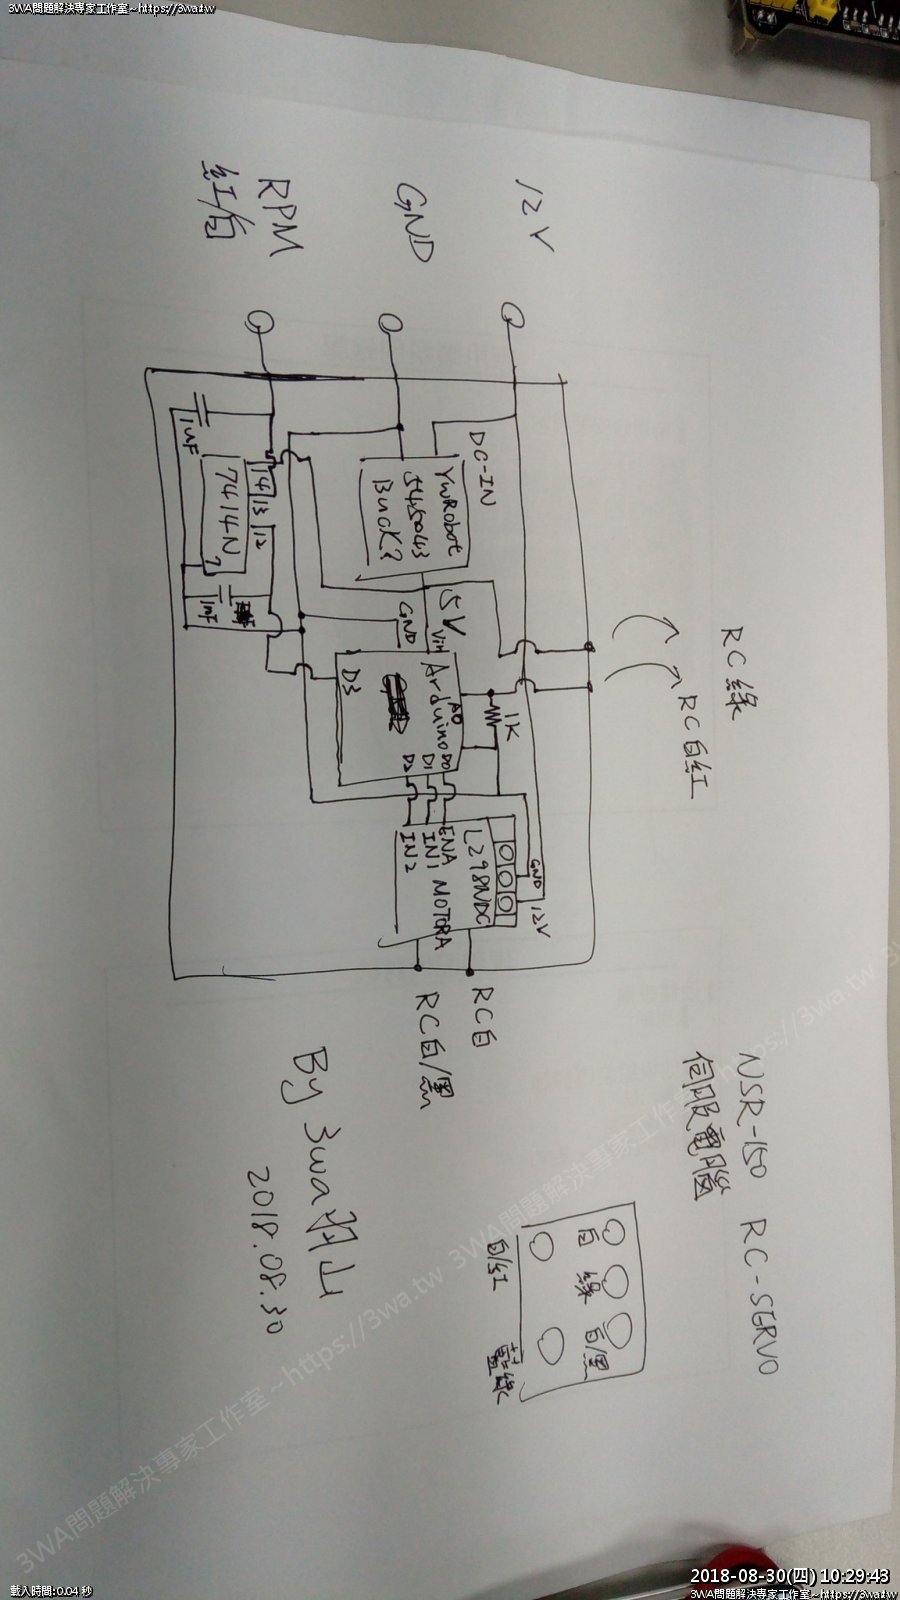 3WA問題解決專家工作室~https://3wa.tw
NSR-150 RC-SERVO
伺服電腦
RC綠
RC白紅
12V
GND
RPM
紅/白
DC-IN
YwRobot
545043
Buck?
5V
Vin
GND
Arduino
A0
D0
D1
D2
D3
1K
L298NDC
MOTORA
ENA
IN1
IN2
GND
12V
RC白
RC白/黑
1uF
7414N
14
13
12
7
1uF
白
綠
白/黑
白/紅
藍綠
By 3wa羽山
2018.08.30
3WA問題解決專家工作室~https://3wa.tw
2018-08-30(四) 10:29:43
載入時間:0.04 秒
3WA問題解決專家工作室~https://3wa.tw